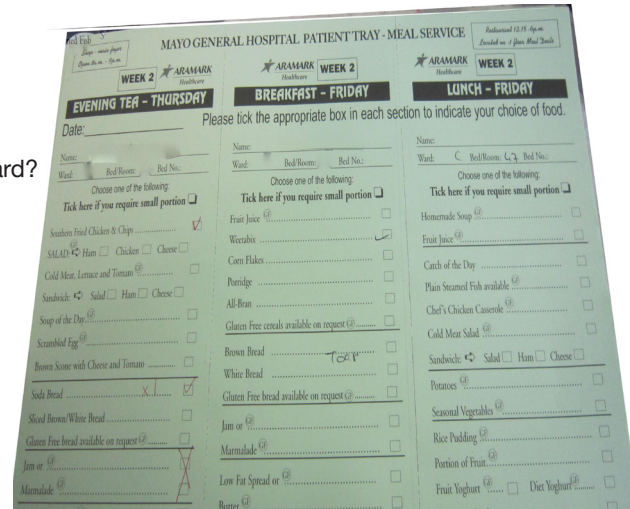 ard?
MAYO GENERAL HOSPITAL PATIENT TRAY - MEAL SERVICE
Shop - main foyer
Open 8a.m. - 9p.m.
Restaurant 12.15 -
Located on 1 floor Main
WEEK 2
ARAMARK
Healthcare
EVENING TEA - THURSDAY
Date:
Name:
Ward: Bed/Room: Bed No.:
Choose one of the following:
Tick here if you require small portion
Southern Fried Chicken & Chips
SALAD: GF Ham Chicken Cheese
Cold Meat, Lettuce and Tomato GF
Sandwich: Salad Ham Cheese
Soup of the Day GF
Scrambled Egg GF
Brown Scone with Cheese and Tomato
Soda Bread x 1
Sliced Brown/White Bread
Gluten Free bread available on request GF
Jam or GF
Marmalade GF
ARAMARK
Healthcare
WEEK 2
BREAKFAST - FRIDAY
Please tick the appropriate box in each section to indicate your choice of food.
Name:
Ward: Bed/Room: Bed No.:
Choose one of the following:
Tick here if you require small portion
Fruit Juice GF
Weetabix
Corn Flakes
Porridge
All-Bran
Gluten Free cereals available on request GF
Brown Bread
White Bread
Gluten Free bread available on request GF
Jam or GF
Marmalade GF
Low Fat Spread or GF
Butter GF
ARAMARK
Healthcare
WEEK 2
LUNCH - FRIDAY
Name:
Ward: C Bed/Room: 47 Bed No.:
Choose one of the following:
Tick here if you require small portion
Homemade Soup GF
Fruit Juice GF
Catch of the Day
Plain Steamed Fish available GF
Chef's Chicken Casserole GF
Cold Meat Salad GF
Sandwich: Salad Ham Cheese
Potatoes GF
Seasonal Vegetables GF
Rice Pudding GF
Portion of Fruit GF
Fruit Yoghurt GF Diet Yoghurt GF